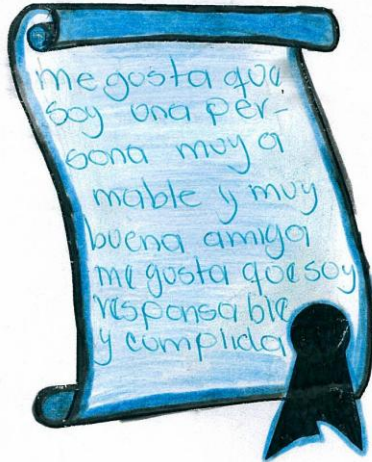 me gusta que
soy una per-
sona muy a
mable y muy
buena amiga
me gusta que soy
responsable
y cumplida